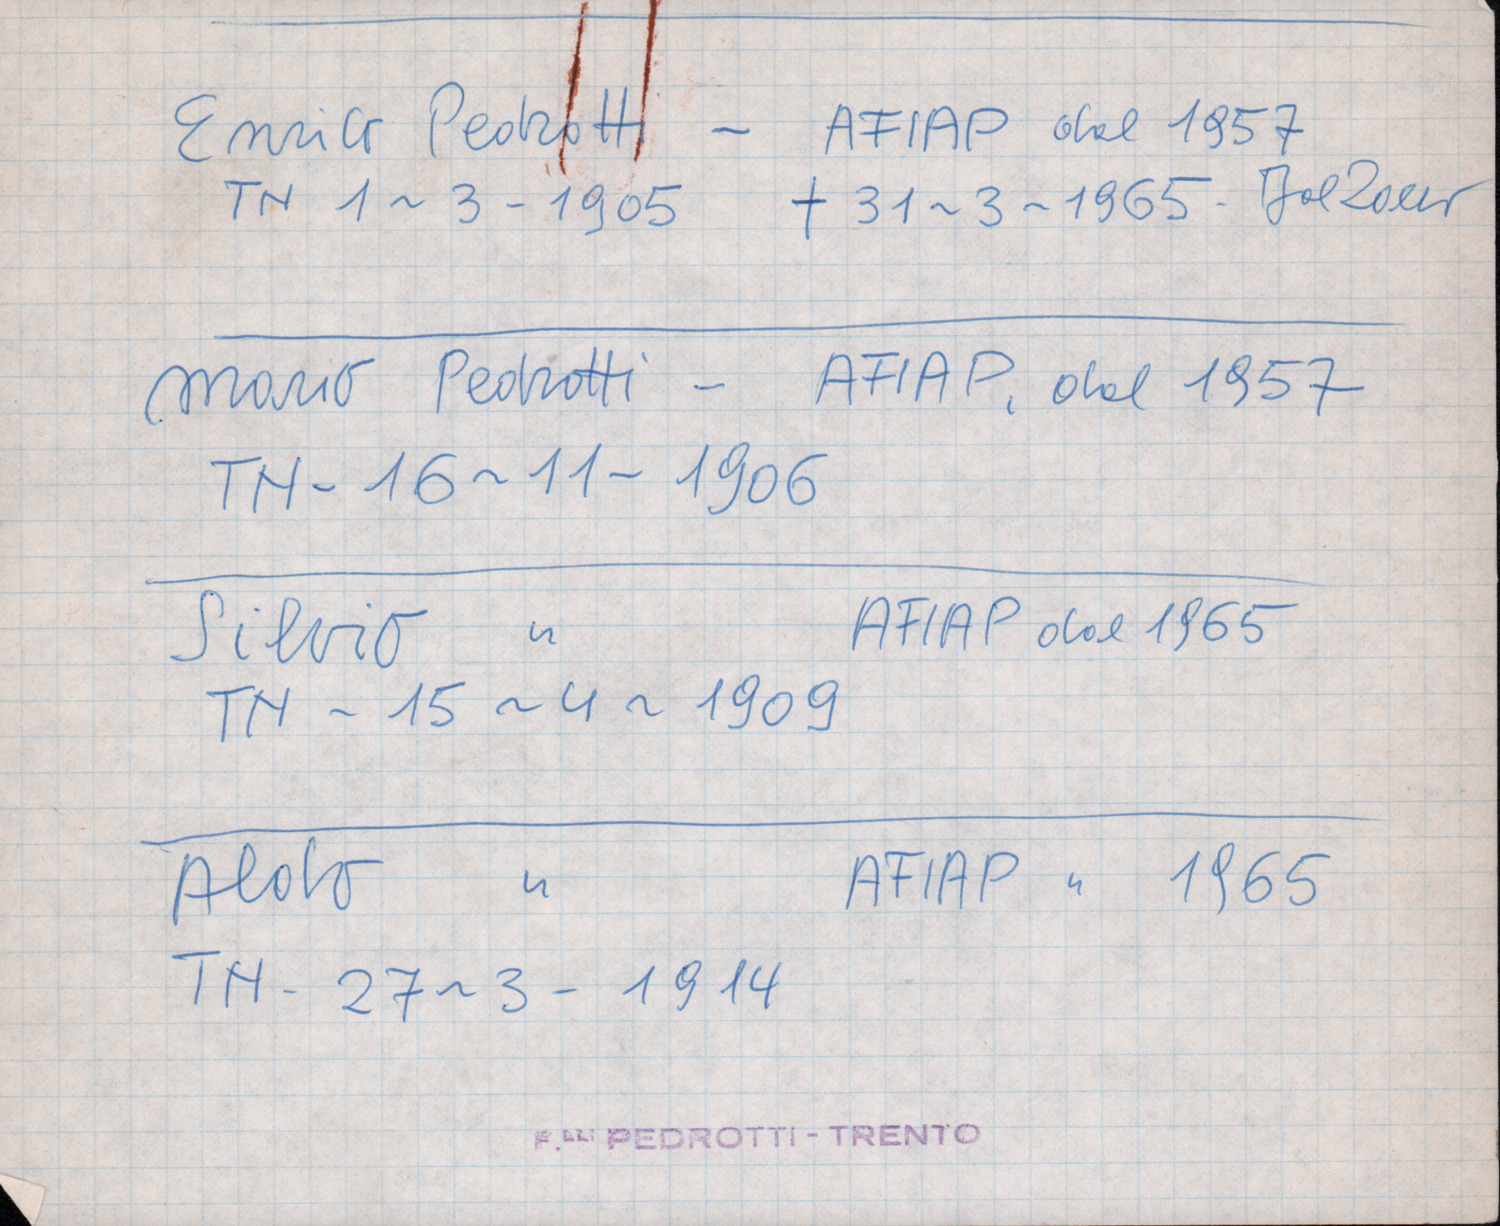 Enrico Pedrotti ~ AFIAP dal 1957
TN 1~3-1905 † 31~3~1965. Bolzano
Mario Pedrotti - AFIAP. dal 1957
TN- 16~11~ 1906
Silvio " AFIAP dal 1965
TN ~ 15 ~4~ 1909
Aldo " AFIAP " 1965
TN- 27~3- 1914
F.LLI PEDROTTI - TRENTO